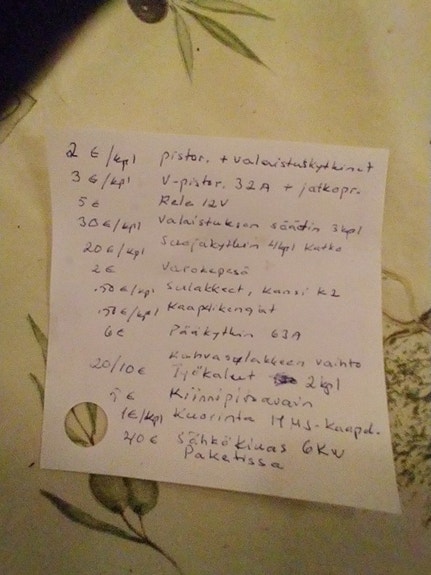 2 €/kpl pistor. + valaistuskytkimet
3 €/kpl V-pistor. 32A + jatkopr.
5 € Rele 12V
30 €/kpl valaistuksen säädin 3kpl
20 €/kpl Suojakytkin 4kpl Katko
2 € varokepesä
.50 €/kpl sulakkeet, kansi k2
.50 €/kpl Kaapelikengät
6 € Pääkytkin 63A
Kahvasulakkeen vaihto
20/10 € Työkalut 2kpl
5 € Kiinnipitoavain
1€/kpl Kuorinta MMS-Kaapel.
40 € Sähkökiuas 6KW
Paketissa